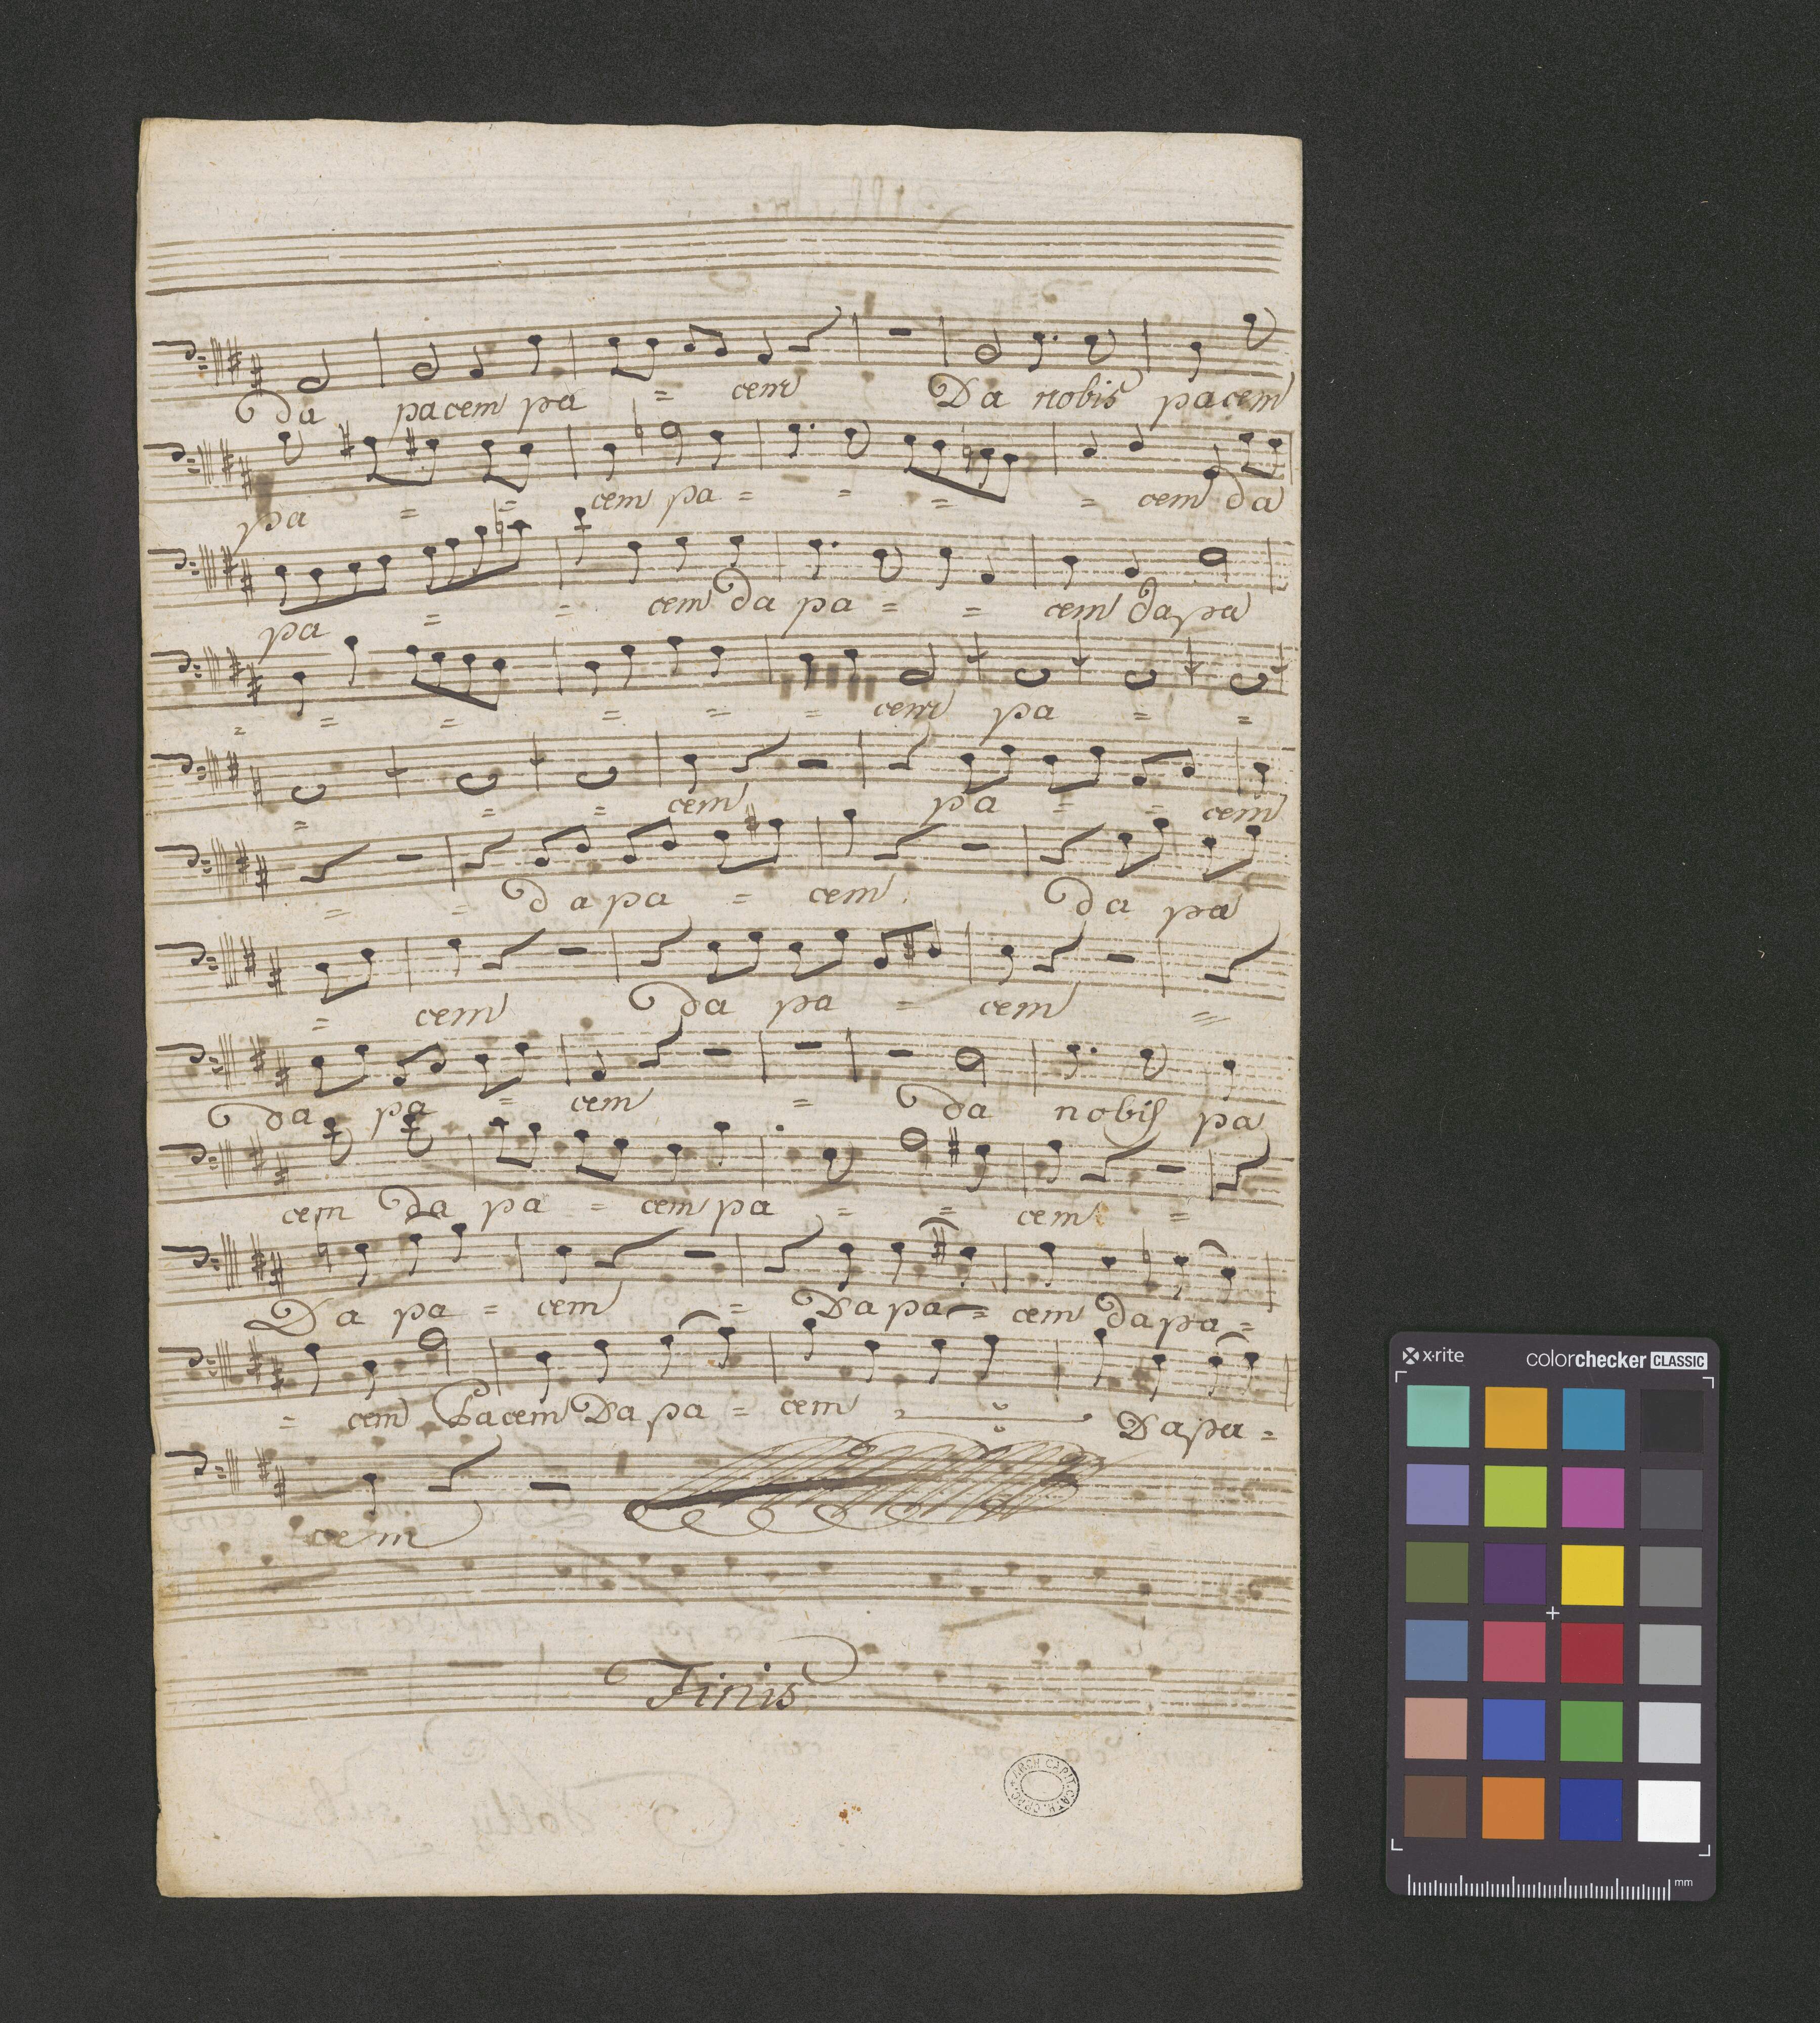 da pacem pa = cem Da nobis pacem
pa = = cem pa = = = = cem da
pa = = cem da pa = = cem da pa
= = = = = = cem pa = =
= = = cem pa = = cem
= = da pa = cem da pa
= cem da pa = cem =
da pa = cem = da nobis pa
cem da pa = cem pa = = cem =
Da pa = cem = Da pa = cem da pa =
= cem Pacem Da pa = cem Da pa =
cem
Finis
ARCH. CAPIT. CATH. CRAC.
x-rite
colorchecker CLASSIC
mm